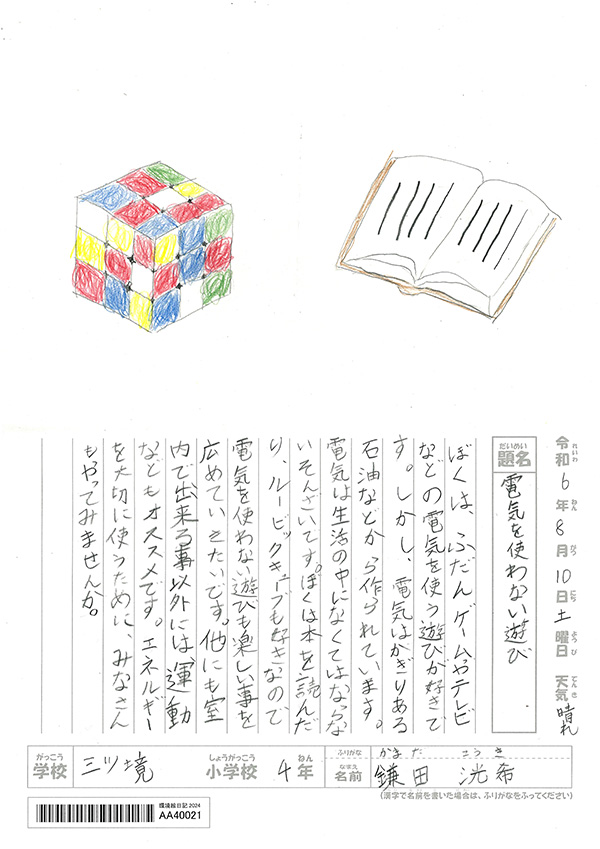 令和6年8月10日土曜日 天気 晴れ
れいわ ねん がつ にち ようび てんき
だいめい
題名 電気を使わない遊び
ぼくは、ふだんゲームやテレビ
などの電気を使う遊びが好きで
す。しかし、電気はかぎりある
石油などから作られています。
電気は生活の中になくてはならな
いそんざいです。ぼくは本を読んだ
り、ルービックキューブも好きなので
電気を使わない遊びも楽しい事を
広めていきたいです。他にも室
内で出来る事以外には運動
などもオススメです。エネルギー
を大切に使うために、みなさん
もやってみませんか。
がっこう しょうがっこう ねん ふりがな かまだ こうき
学校 三ツ境 小学校 4年 なまえ 名前 鎌田 洸希
(漢字で名前を書いた場合は、ふりがなをふってください)
環境絵日記2024
AA40021